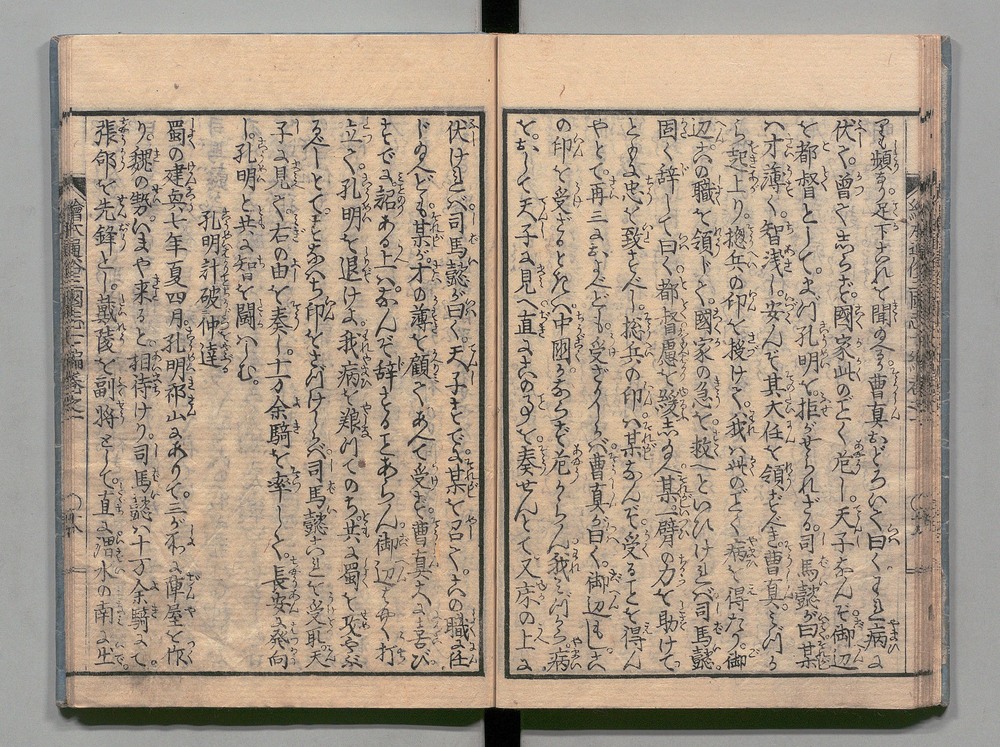 伏て。曾てしらず。國家此のごとく危し。天子なんぞ御辺
を都督として。まづ孔明を拒がせられざる。司馬懿が曰某
才薄く智浅し。安んぞ其大任を領ぜん。曹真みづから
起上り。総兵の印を授けて。我は此のごとく病を得たり。御
辺この職を領じて。國家の急を救へといひければ。司馬懿
固く辞して曰く。都督憂を発し玉ふな。某一臂の力を助けて。
ともに忠を致すべし。総兵の印は某なんぞ受ることを得ん
やとて。再三すすむれども。受ざりければ曹真が曰く。御辺もしこ
の印を受ざるときは。中國かならず危からん。我みづから。病
をおして天子に見へ。直にこのことを奏せんとて。又床の上に
伏ければ。司馬懿が曰く。天子すでに某を召て。この職に任
じ玉へども。某が才の薄を顧てあへて受ず。曹真大に喜び
すでに詔ある上は。なんぞ辞することあらん。御辺はやく打
立て。孔明を退けよ。我病を養ひてのち。共に蜀を攻やぶる
べしとて。すなはち印をさづけければ。司馬懿これを受取。天
子に見へて右の由を奏し。十万余騎を率して。長安に発向
し。孔明と共に智を闘はしむ。
孔明計破仲達
蜀の建興七年夏四月。孔明祁山にありて。三ヶ所に陣屋を作
り。魏の勢いまや来ると相待けり。司馬懿は十万余騎にて。
張郃を先鋒とし。戴陵を副将として。直に渭水の南に出。